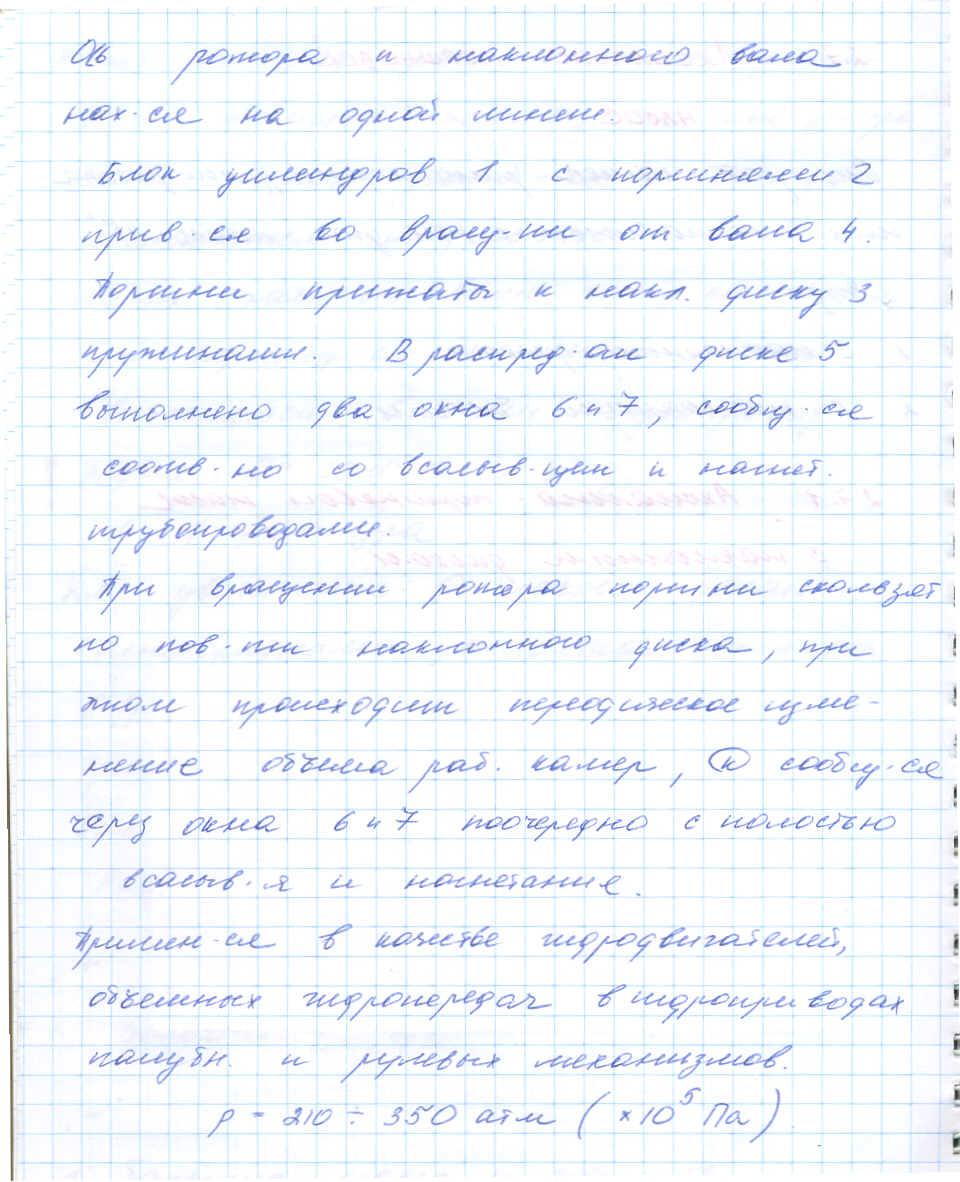 Ось ротора и наклонного вала
нах-ся на одной линии.
Блок цилиндров 1 с поршнями 2
прив-ся во вращ-ни от вала 4.
Поршни прижаты к накл. диску 3
пружинами. В распред-ом диске 5
выполнено два окна 6 и 7, сообщ-ся
соотв-но со всасыв-щем и нагнет.
трубопроводами.
При вращении ротора поршни скользят
по пов-ти наклонного диска, при
этом происходит периодическое изме-
нение объема раб. камер, (к) сообщ-ся
через окна 6 и 7 поочередно с полостью
всасыв-я и нагнетания.
Примен-ся в качестве гидродвигателей,
объемных гидропередач в гидроприводах
палубн. и рулевых механизмов.
p = 210 ÷ 350 атм (×10⁵ Па)